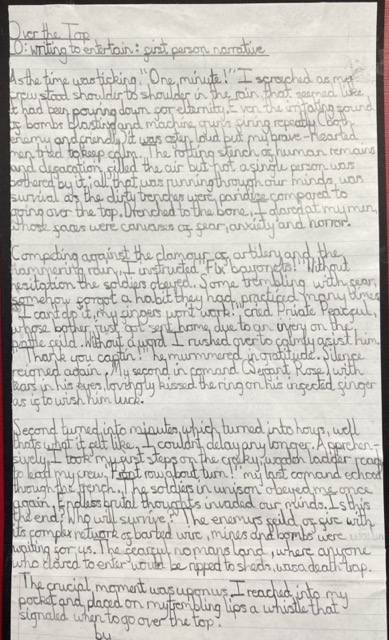 Over the Top
LO: writing to entertain: first person narrative
As the time was ticking, "One minute!" I screeched as my
crew stood shoulder to shoulder in the rain that seemed like
it had been pouring down for eternity. Even the irritating sound
of bombs blasting and machine guns firing repeatly (both
enemy and friendly) it was often loud but my brave-hearted
men tried to keep calm. The rotting stench of human remains
and defacation filled the air but not a single person was
bothered by it; all that was running through our minds, was
survival as the dirty trenches were paradise compared to
going over the top. Drenched to the bone, I glared at my men,
whose faces were canvases of fear, anxiety and horror.
Competing against the clamour of artilery and the
hammering rain, I instructed "Fix bayonets!" Without
hesitation the soldiers obeyed. Some trembling with fear,
somehow forgot a habit they had practiced many times
"I cant do it, my fingers wont work." cried Private Peaceful,
whose bother just got sent home, due to an injory on the
battle feild. Without a word I rushed over to calmly asist him.
"Thank you captin!" he murmmered in gratitude. Silence
reigned again. My second in comand (Serjant Rose) with
tears in his eyes, lovingly kissed the ring on his ingected finger
as if to wish him luck.
Second turned into minutes, which turned into hours, well
thats what it felt like, I couldnt delay any longer. Apprehen-
sively, I took my first steps on the creeky wooden ladder ready
to lead my crew, "Front row about turn!" my last comand echoed
through the trench. The soldiers in unison obeyed me once
again. Endless brutal thoughts invaded our minds. Is this
the end? Who will survive? The enemys feild of fire with
its complex network of barbed wire, mines and bombs were
waiting for us. The fearful no mans land, where anyone
who dared to enter would be ripped to sheds, was a death trap.
The crucial moment was upon us. I reached into my
pocket and placed on my trembling lips a whistle that
signaled when to go over the top.
by